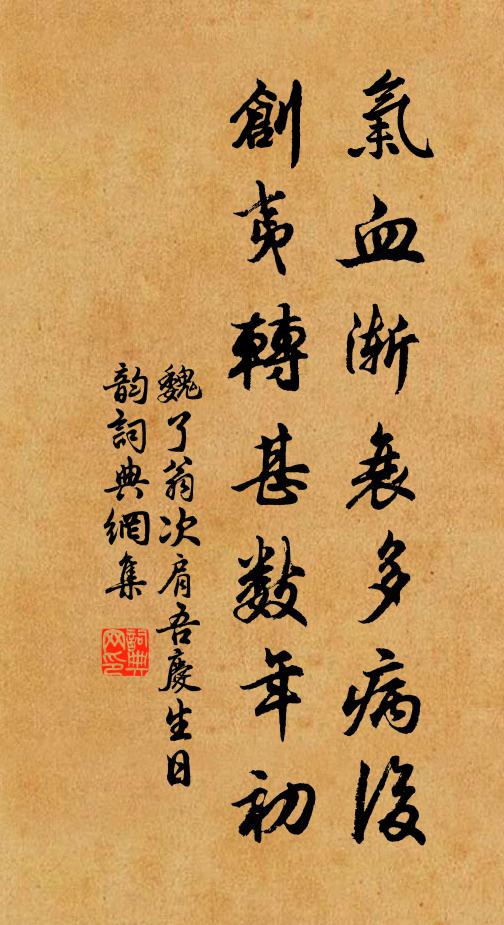 氣血漸衰多病後
創夷轉甚數年初
魏了翁次肩吾慶生日
韵詞典網集
詞典网印